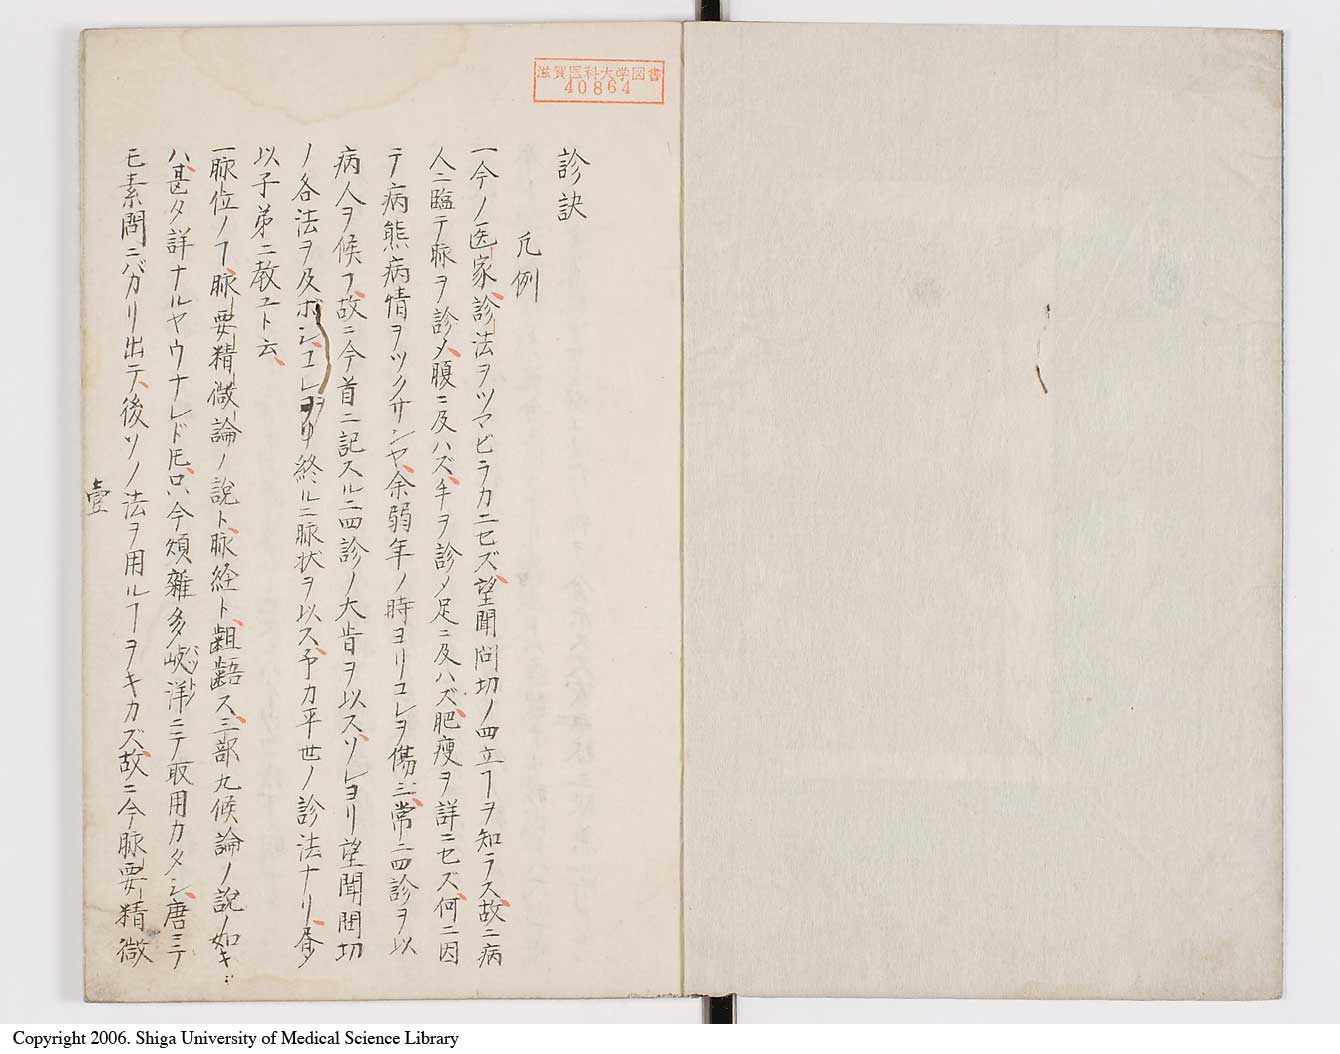 滋賀医科大学図書
40864
診訣
凡例
一今ノ医家、診法ヲツマビラカニセズ、望聞問切ノ四立ヿヲ知ラス、故ニ病
人ニ臨テ脈ヲ診〆、腹ニ及ハズ、手ヲ診〆足ニ及ハズ、肥瘦ヲ詳ニセズ、何ニ因
テ病態病情ヲツクサンヤ、余弱年ノ時ヨリコレヲ傷ミ、常ニ四診ヲ以
病人ヲ候フ、故ニ今首ニ記スルニ四診ノ大旨ヲ以ス、ソレヨリ望聞問切
ノ各法ヲ及ボシ、コレヲ終ルニ脈状ヲ以ス、予カ平世ノ診法ナリ、
以子弟ニ教ユト云、
一脈位ノヿ、脈要精微論ノ説ト、脈経ト、齟齬ス、三部九候論ノ説ノ如キ
ハ、甚タ詳ナルヤウナレドモ、只今煩雑多岐洋ニテ取用カタシ、唐ニテ
モ素問ニバカリ出テ、後ソノ法ヲ用ルヿヲキカズ、故ニ今脈要精微
壹
Copyright 2006. Shiga University of Medical Science Library